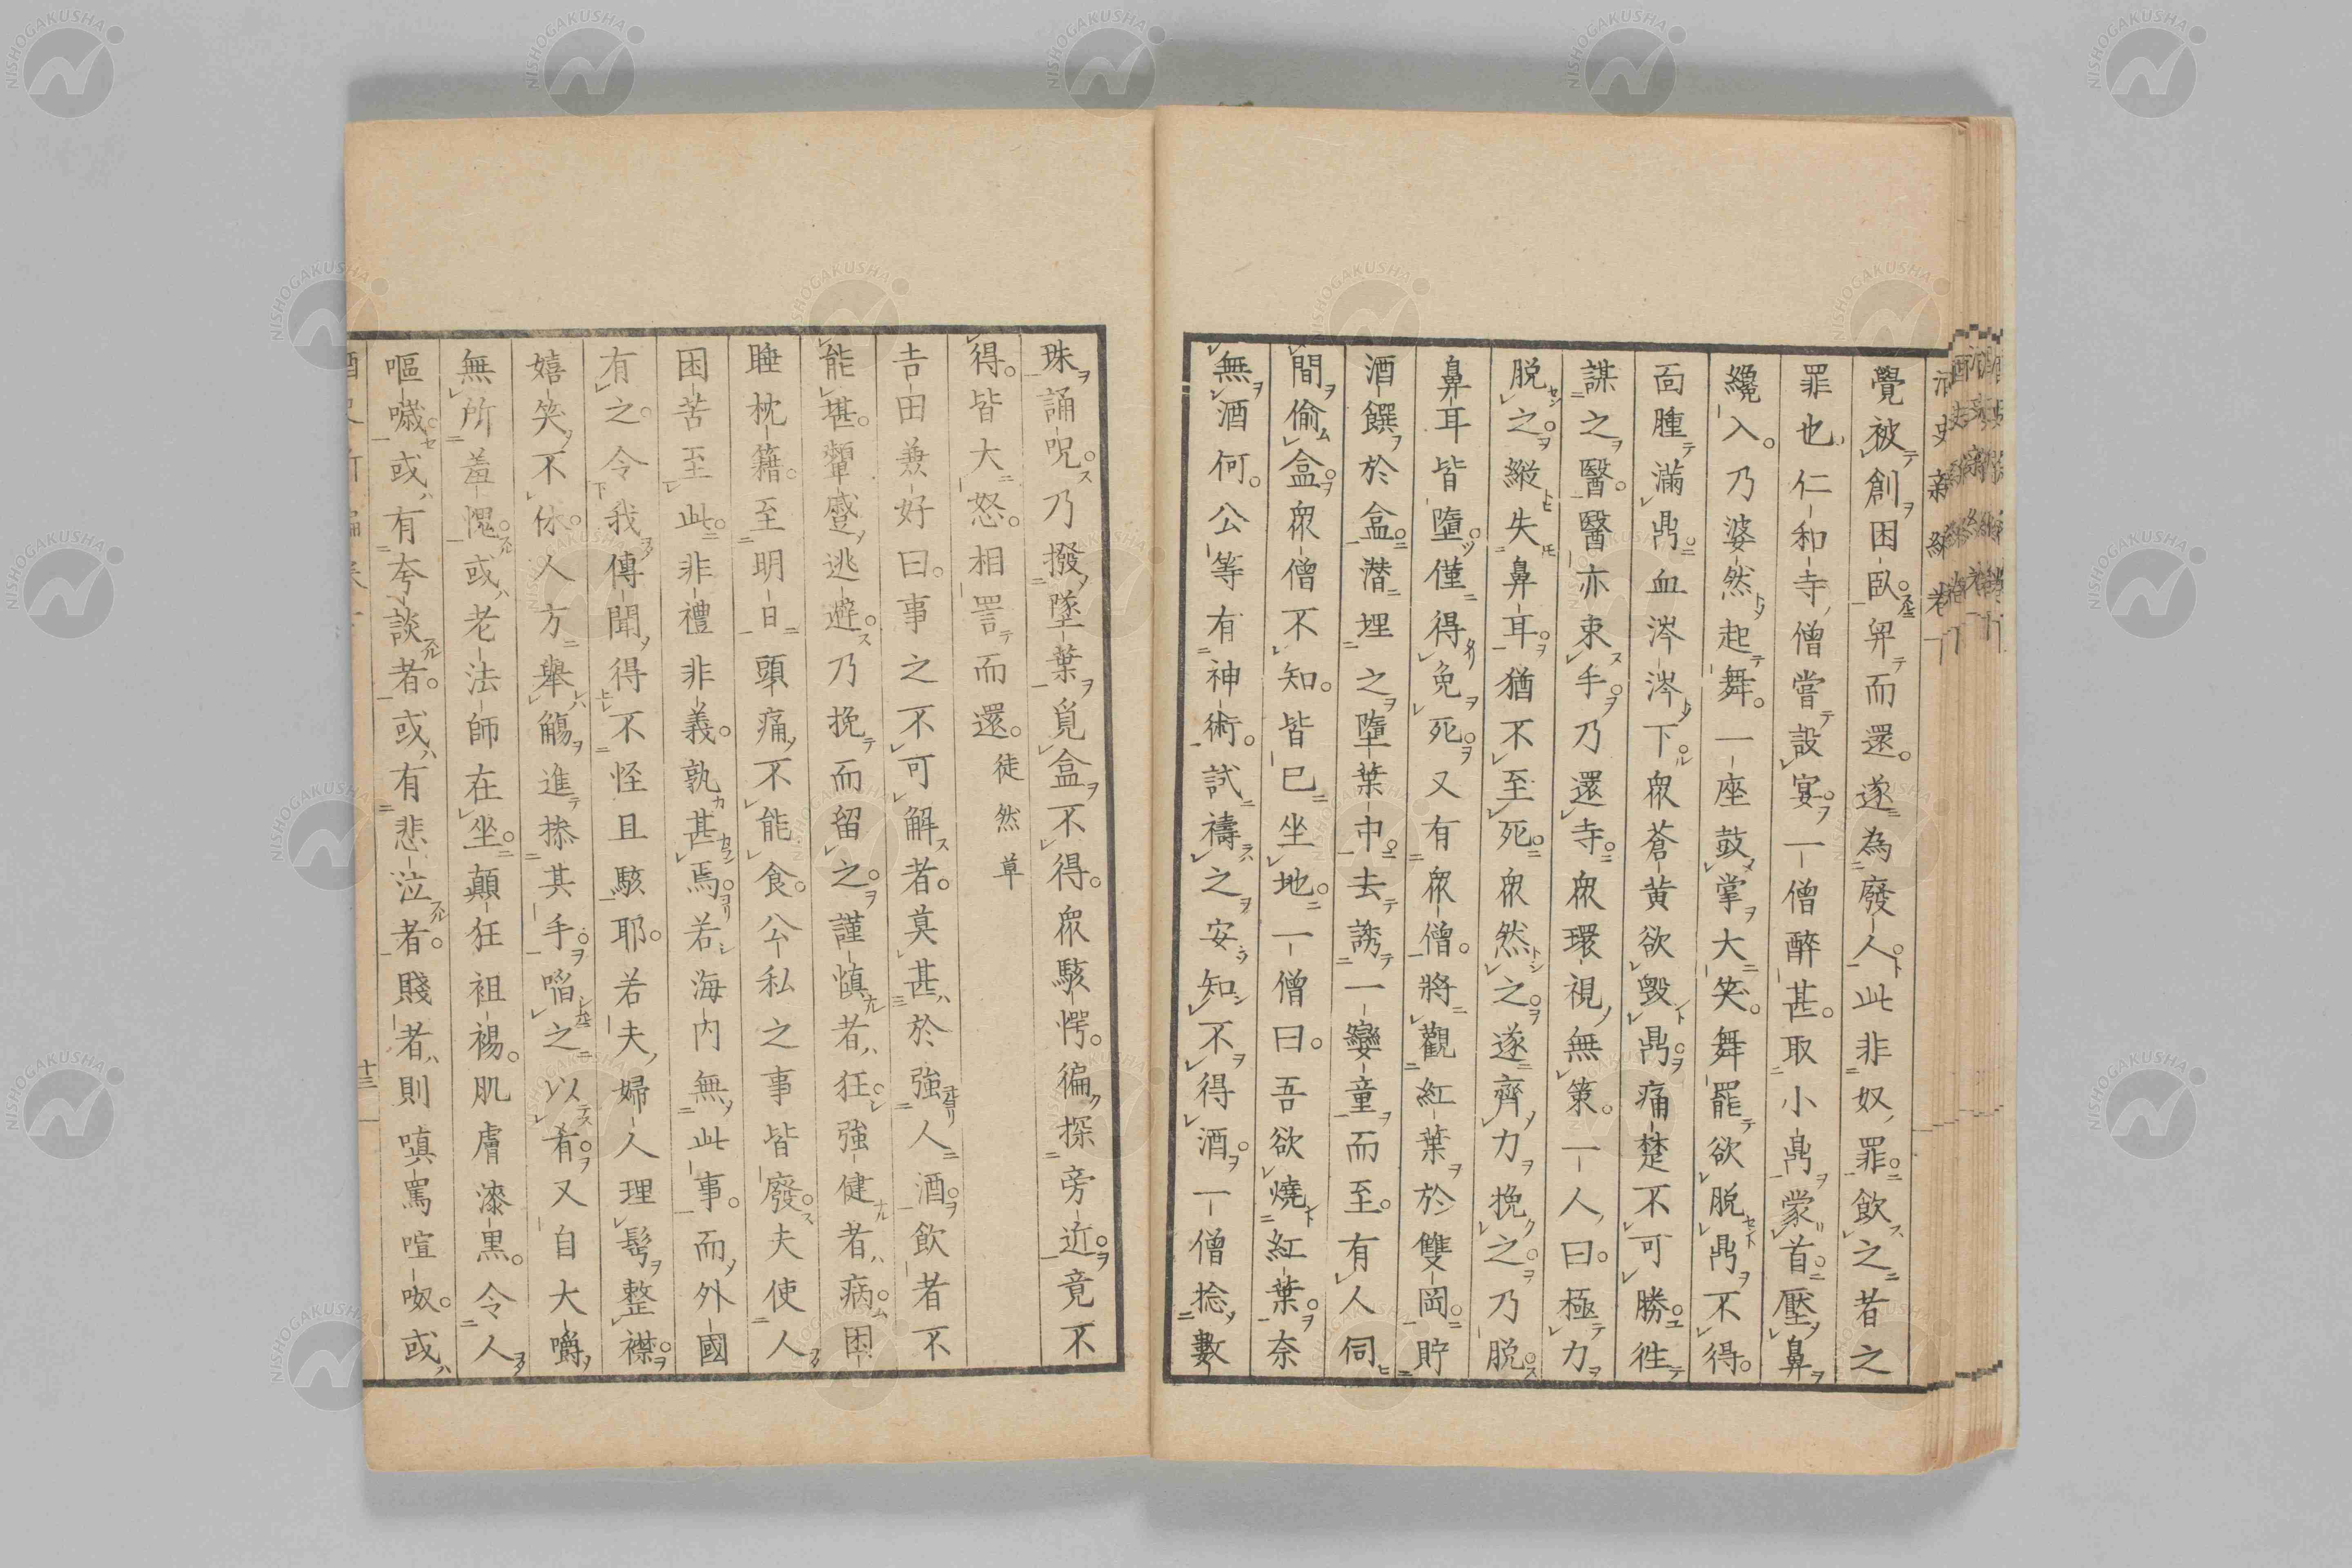 覺被創困臥。舁而還。遂為廢人。此非奴罪。飲之者之
罪也。仁和寺僧嘗設宴。一僧醉甚。取小鼎蒙首壓鼻
纔入。乃婆然起舞。一座鼓掌大笑。舞罷欲脫鼎不得。
面腫滿鼎。血涔涔下。衆蒼黃欲毀鼎。痛楚不可勝。徃
謀之醫。醫亦束手。乃還寺。衆環視無策。一人曰。極力
脫之。縱失鼻耳。猶不至死。衆然之。遂齊力挽之。乃脫。
鼻耳皆墮。僅得免死。又有衆僧。將觀紅葉於雙岡。貯
酒饌於盒。潛埋之墮葉中。去誘一孌童而至。有人伺
間偷盒。衆僧不知。皆已坐地。一僧曰。吾欲燒紅葉。奈
無酒何。公等有神術。試禱之。安知不得酒。一僧捻數
珠誦呪。乃撥墜葉覓盒不得。衆駭愕。徧探旁近。竟不
得。皆大怒。相詈而還。徒然草
吉田兼好曰。事之不可解者。莫甚於強人酒。飲者不
能堪。顰蹙逃避。乃挽而留之。謹慎者狂。強健者病。困
睡枕籍。至明日頭痛不能食。公私之事皆廢。夫使人
困苦至此。非禮非義。孰甚焉。若海内無此事。而外國
有之。令我傳聞得不怪且駭耶。若夫婦人理髩整襟。
嬉笑不休。人方舉觴進搽其手。啗之以肴。又自大嚼
無所羞愧。或老法師在坐。顛狂袒裼。肌膚漆黑。令人
嘔噦。或有夸談者。或有悲泣者。賤者則嗔罵喧呶。或
十三
NISHOGAKUSHA